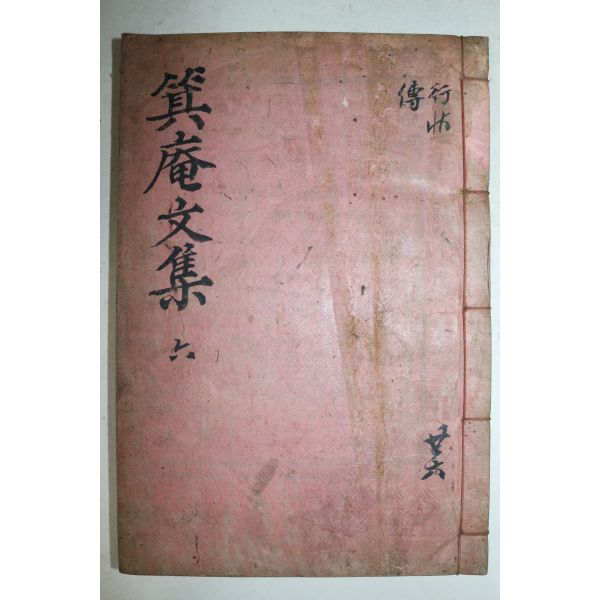 箕庵文集
六
行狀
傳
共六